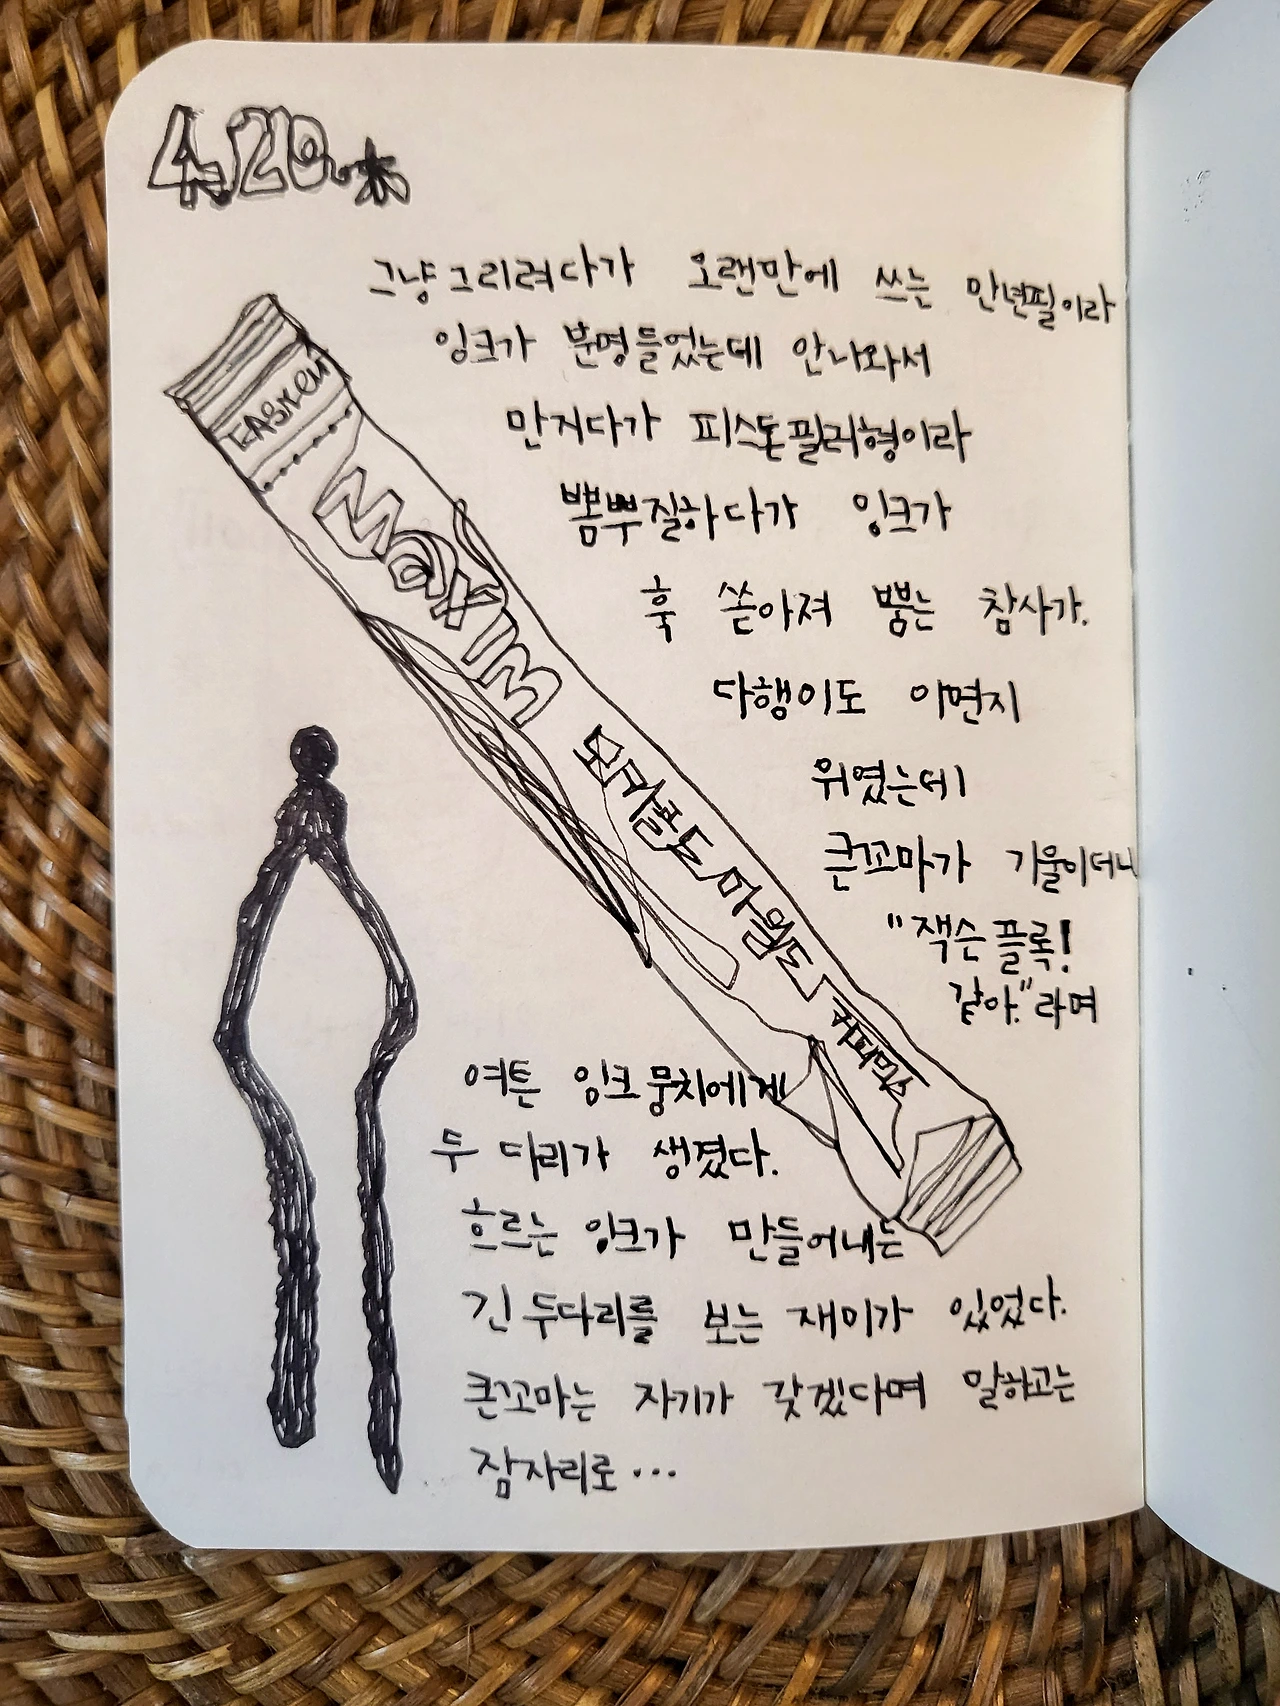 4.20.木
그냥 그리려다가 오랜만에 쓰는 만년필이라
잉크가 분명들었는데 안나와서
만지다가 피스톤필러형이라
뽐뿌질하다가 잉크가
훅 쏟아져 뿜는 참사가.
다행이도 이면지
위였는데
큰꼬마가 기울이더니
"잭슨플록!
같아."라며
여튼 잉크뭉치에게
두 다리가 생겼다.
흐르는 잉크가 만들어내는
긴 두다리를 보는 재미가 있었다.
큰꼬마는 자기가 갖겠다며 말하고는
잠자리로...
MaXIM
모카골드 마일드
커피믹스